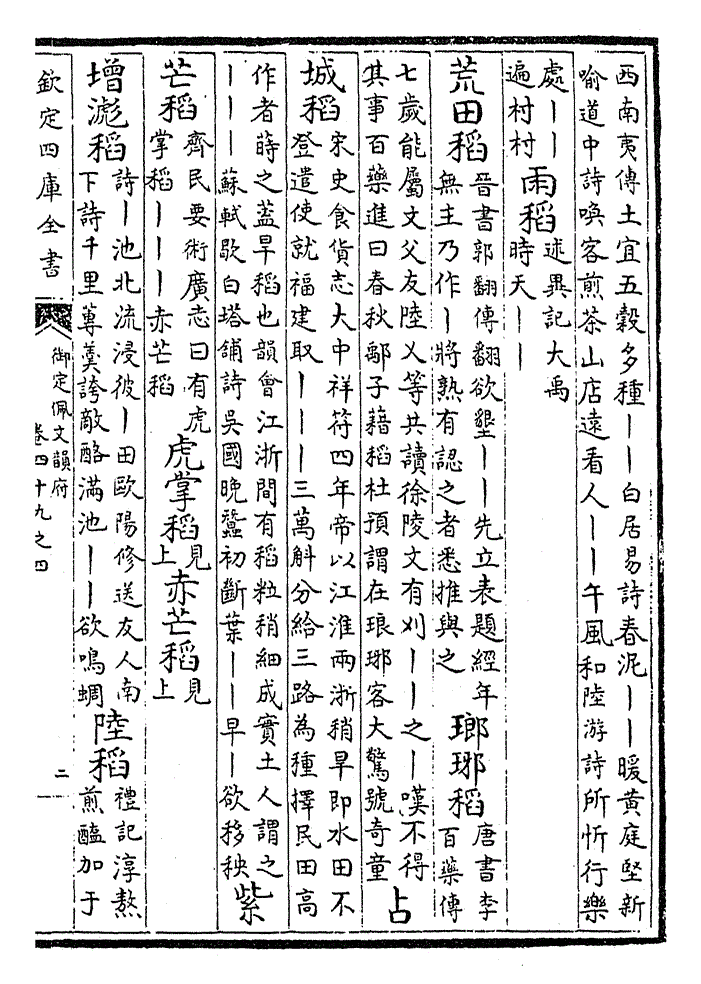 西南夷傳土宜五穀多種丨丨白居易詩春泥丨丨暖黄庭堅新
喻道中詩喚客煎茶山店遠看人丨丨午風和陸游詩所忻行樂
處丨丨
遍村村
雨稻
述異記大禹
時天丨丨
荒田稻
晉書郭翻傳翻欲墾丨丨先立表題經年
無主乃作丨將熟有認之者悉推與之
瑯琊稻
唐書李
百藥傳
七歲能屬文父友陸乂等共讀徐陵文有刈丨丨之丨嘆不得
其事百藥進曰春秋鄅子藉稻杜預謂在琅琊客大驚號奇童
占
城稻
宋史食貨志大中祥符四年帝以江淮兩浙稍旱即水田不
登遣使就福建取丨丨丨三萬斛分給三路為種擇民田高
作者蒔之葢旱稻也韻會江浙間有稻粒稍細成實土人謂之
丨丨丨蘇軾歇白塔舖詩吳國晚蠶初斷葉丨丨早丨欲移秧
紫
芒稻
齊民要術廣志曰有虎
掌稻丨丨丨赤芒稻
虎掌稻
見
上
赤芒稻
見
上
增滮稻
詩丨池北流浸彼丨田歐陽修送友人南
下詩千里蓴羮誇敵酪滿池丨丨欲鳴蜩
陸稻
禮記淳熬
煎醢加于
欽定四庫全書
御定佩文韻府
卷四十九之四
二